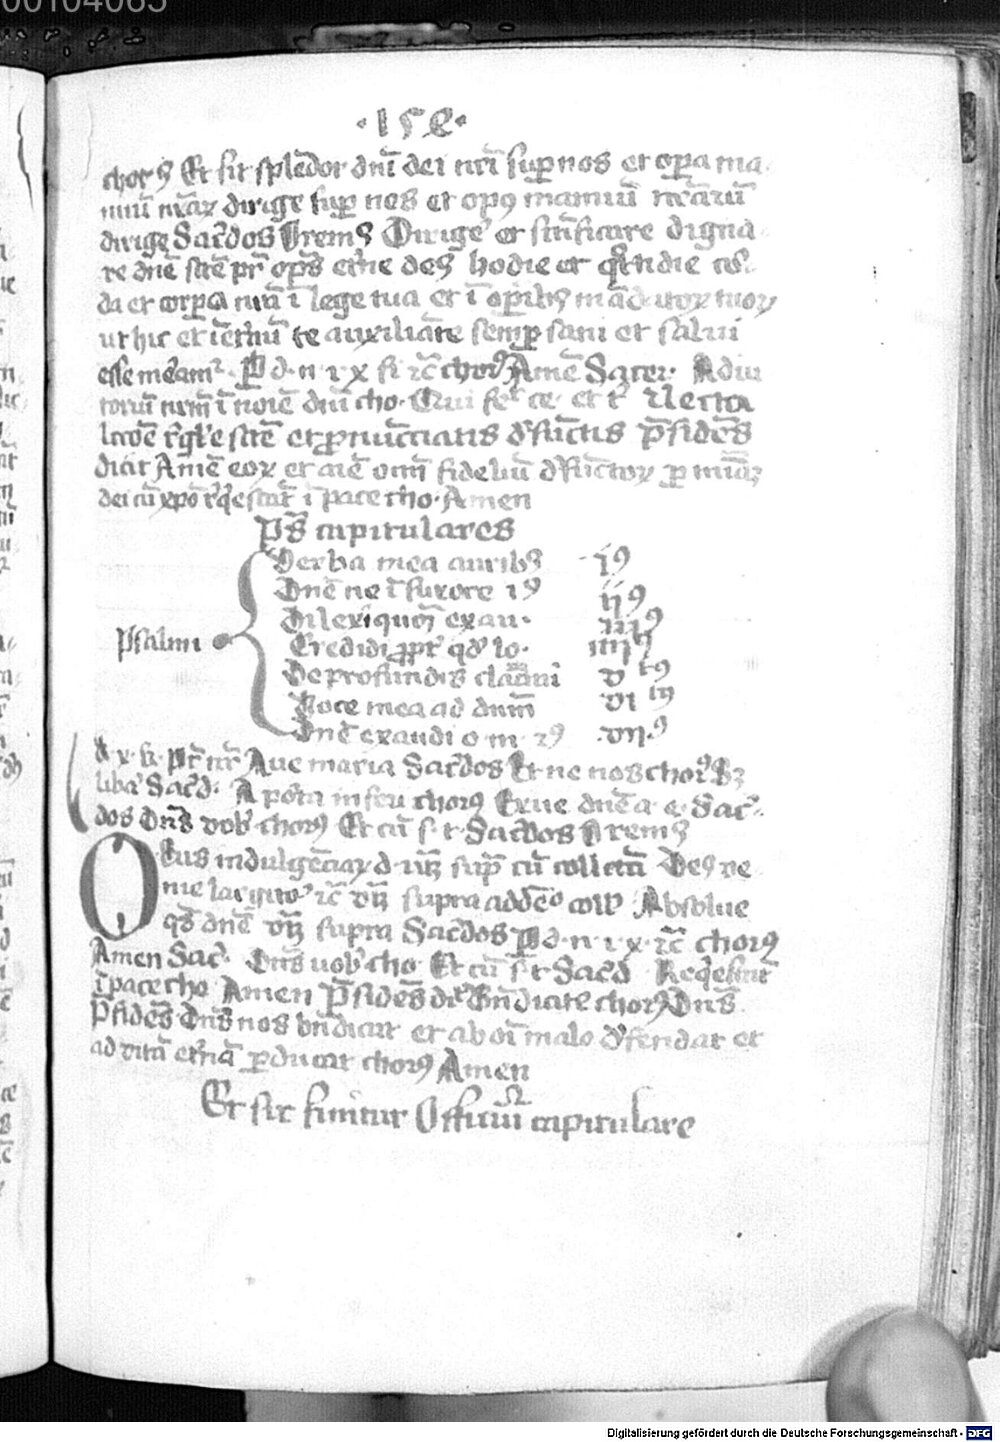 00104065
·158·
chorꝰ Et sit splēdor dnī dei nr̄i sup nos et oꝑa ma
nuū nr̄aꝝ dirige suꝑ nos et opꝰ manuū nr̄arū
dirige Sac̄dos Oremꝰ Dirige et sc̄ificare digna
re dnē sc̄te pr̄ oꝑs et̄ne deꝰ hodie et quotidie cor
da et corꝑa nr̄a ī lege tua et ī oꝑibꝰ mādatoꝝ tuoꝝ
ut hic et īet̄nū te auxiliāte semꝑ sani et salui
esse meam᷑ · P d · n · i · x fi rc̄ chorꝰ Amē Sacer · Adiu
toriū nr̄m ī noīe dnī cho · Qui fec̄ ce · et t᷑ Lecta
lcc̄oē rg̃le sctē et ꝓnūcciatis defūctis p̄sidēs
dicit Amē eoꝝ et aīe oīm fideliū defūctoꝝ ꝑ mīaꝫ
dei cū xpo rq̄escāt ī pace cho · Amen
Ps̄ capitulares
Psalmi
Verba mea auribꝰ iꝰ
Dnē ne ī furore iiꝰ iiꝰ
Dilexi quoꝫ exau · iiiꝰ
Credidi ꝓpt᷑ qd̄ lo · iiiiꝰ
De profundis clamaui vtꝰ
Voce mea ad dnm̄ vi
Dnē exaudi o · m · 2ꝰ vii·ꝰ
k · x · k · Pr̄ nr̄ Aue maria Sac̄dos Et ne nos chorꝰ Sꝫ
libā Sac̄d · A porta inferi chorꝰ Erue dnē a · e · Sac̄
dos Dnꝰ vob̄ chorꝰ Et cū s · t · Sac̄dos Oremꝰ
Deus indulgēciaꝝ d · utꝫ sup̄ cū collecta Deꝰ ve
nie largitor rc̄ vt̄ supra addēo coll Absolue
qs̄ dnē vt̄ supra Sac̄dos P d · n · i · x · rc̄ chorꝰ
Amen Sac̄ · Dnꝰ uob̄ cho Et cū s · t · Sac̄d Req̄escāt
ī pace cho Amen P̄sidēs dic̄ Bn̄dicite chorꝰ Dnꝰ
P̄sidēs Dnꝰ nos bn̄dicat et ab oī malo defendat et
ad vitā et̄nā ꝑducat chorꝰ Amen
Et sic finitur Officiū capitulare
Digitalisierung gefördert durch die Deutsche Forschungsgemeinschaft - DFG